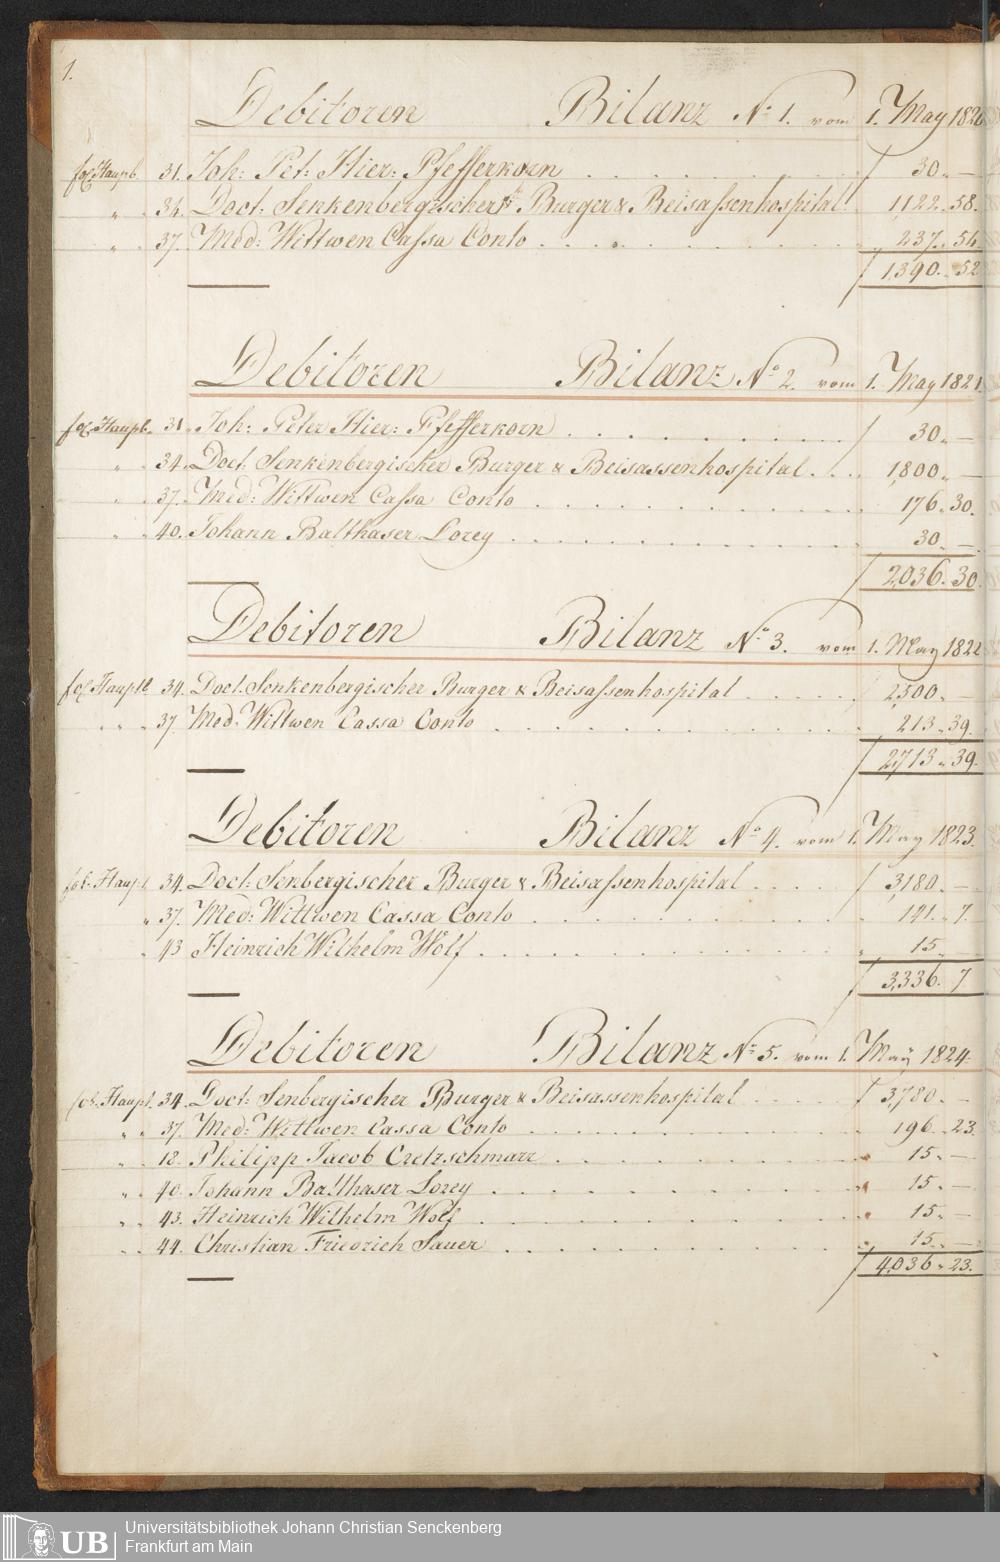 1.
Debitoren Bilanz No. 1. vom 1. May 1820
fol. Hauptb. 31. Joh: Pet: Hier: Pfefferkorn f 30. —
" 34. Doct: Senkenbergischer Burger & Beisassenhospital 1,122. 58.
" 37. Med: Wittwen Cassa Conto " 237. 54.
f 1,390. 52
Debitoren Bilanz No. 2. vom 1. May 1821.
fol. Hauptb. 31. Joh: Peter Hier: Pfefferkorn f 30. —
" 34. Doct. Senkenbergischer Burger & Beisassenhospital 1,800. —
" 37. Med: Wittwen Cassa Conto 176. 30.
" 40. Johann Balthaser Lorey 30. —
f 2,036. 30.
Debitoren Bilanz No. 3. vom 1. May 1822
fol. Hauptb. 34. Doct. Senkenbergischer Burger & Beisassenhospital f 2,500. —
" 37. Med: Wittwen Cassa Conto 213. 39.
f 2,713. 39.
Debitoren Bilanz No. 4. vom 1. May 1823.
fol. Haupt. 34. Doct: Senbergischer Burger & Beisassenhospital f 3,180. —
" 37. Med: Wittwen Cassa Conto 141. 7.
" 43 Heinrich Wilhelm Wolf " 15. —
f 3,336. 7
Debitoren Bilanz No. 5. vom 1. May 1824.
fol. Haupt. 34. Doct: Senbergischer Burger & Beisassenhospital f 3,780. —
" 37. Med: Wittwen Cassa Conto 196. 23.
" 18. Philipp Jacob Cretzschmarr " 15. —
" 40. Johann Balthaser Lorey " 15. —
" 43. Heinrich Wilhelm Wolf " 15. —
" 44. Christian Friedrich Sauer " 15. —
f 4,036. 23.
UB Universitätsbibliothek Johann Christian Senckenberg
Frankfurt am Main